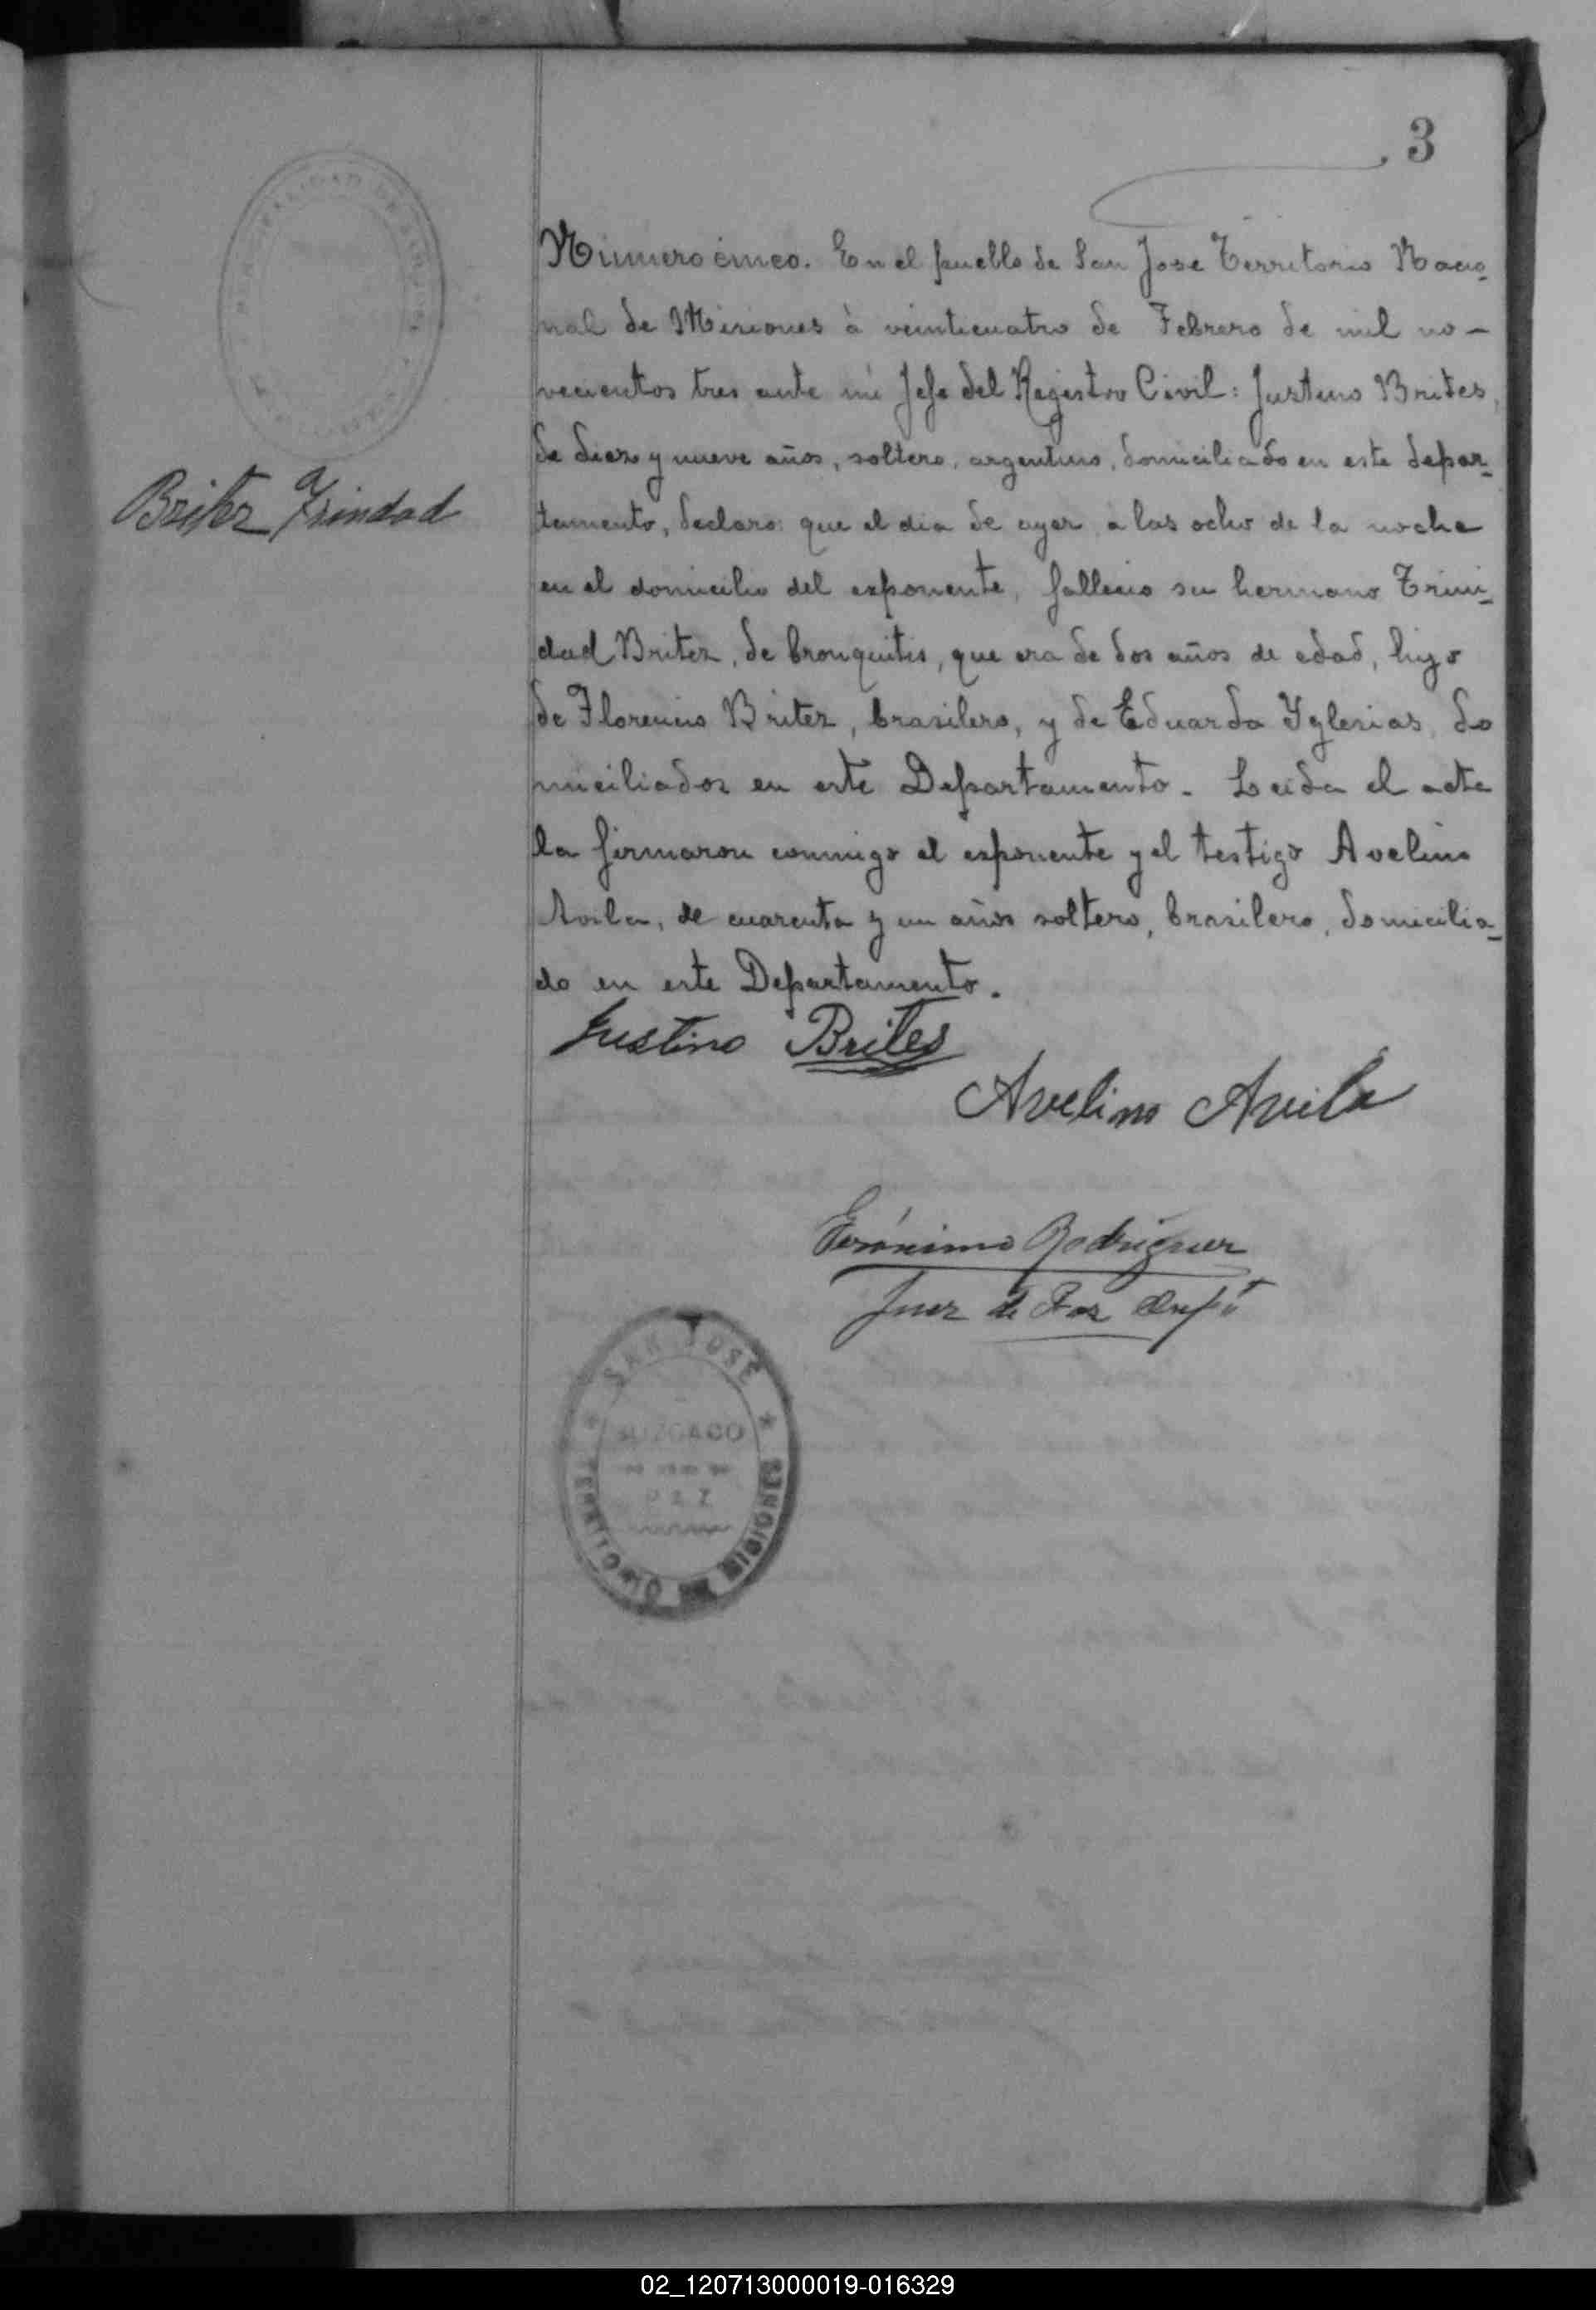 3
Número cinco. En el pueblo de San Jose Territorio Nacio-
nal de Misiones à veinticuatro de Febrero de mil no-
vecientos tres ante mi Jefe del Registro Civil: Justino Brites,
de diez y nueve años, soltero, argentino, domiciliado en este depar-
tamento, declaro: que el dia de ayer, a las ocho de la noche
en el domicilio del exponente, fallecio su hermano Trini-
dad Britez, de bronquitis, que era de dos años de edad, hijo
de Florencio Britez, brasilero, y de Eduarda Yglesias, do
miciliados en este Departamento. Leida el acta
la firmaron conmigo el exponente y el testigo Avelino
Avila, de cuarenta y un años soltero, brasilero, domicilia-
do en este Departamento.
Britez Trindad
Justino Brites
Avelino Avila
Gerónimo Rodriguez
Juez de Paz
SAN JOSÉ
JUZGADO
DE
PAZ
TERRITORIO DE MISIONES
02_120713000019-016329